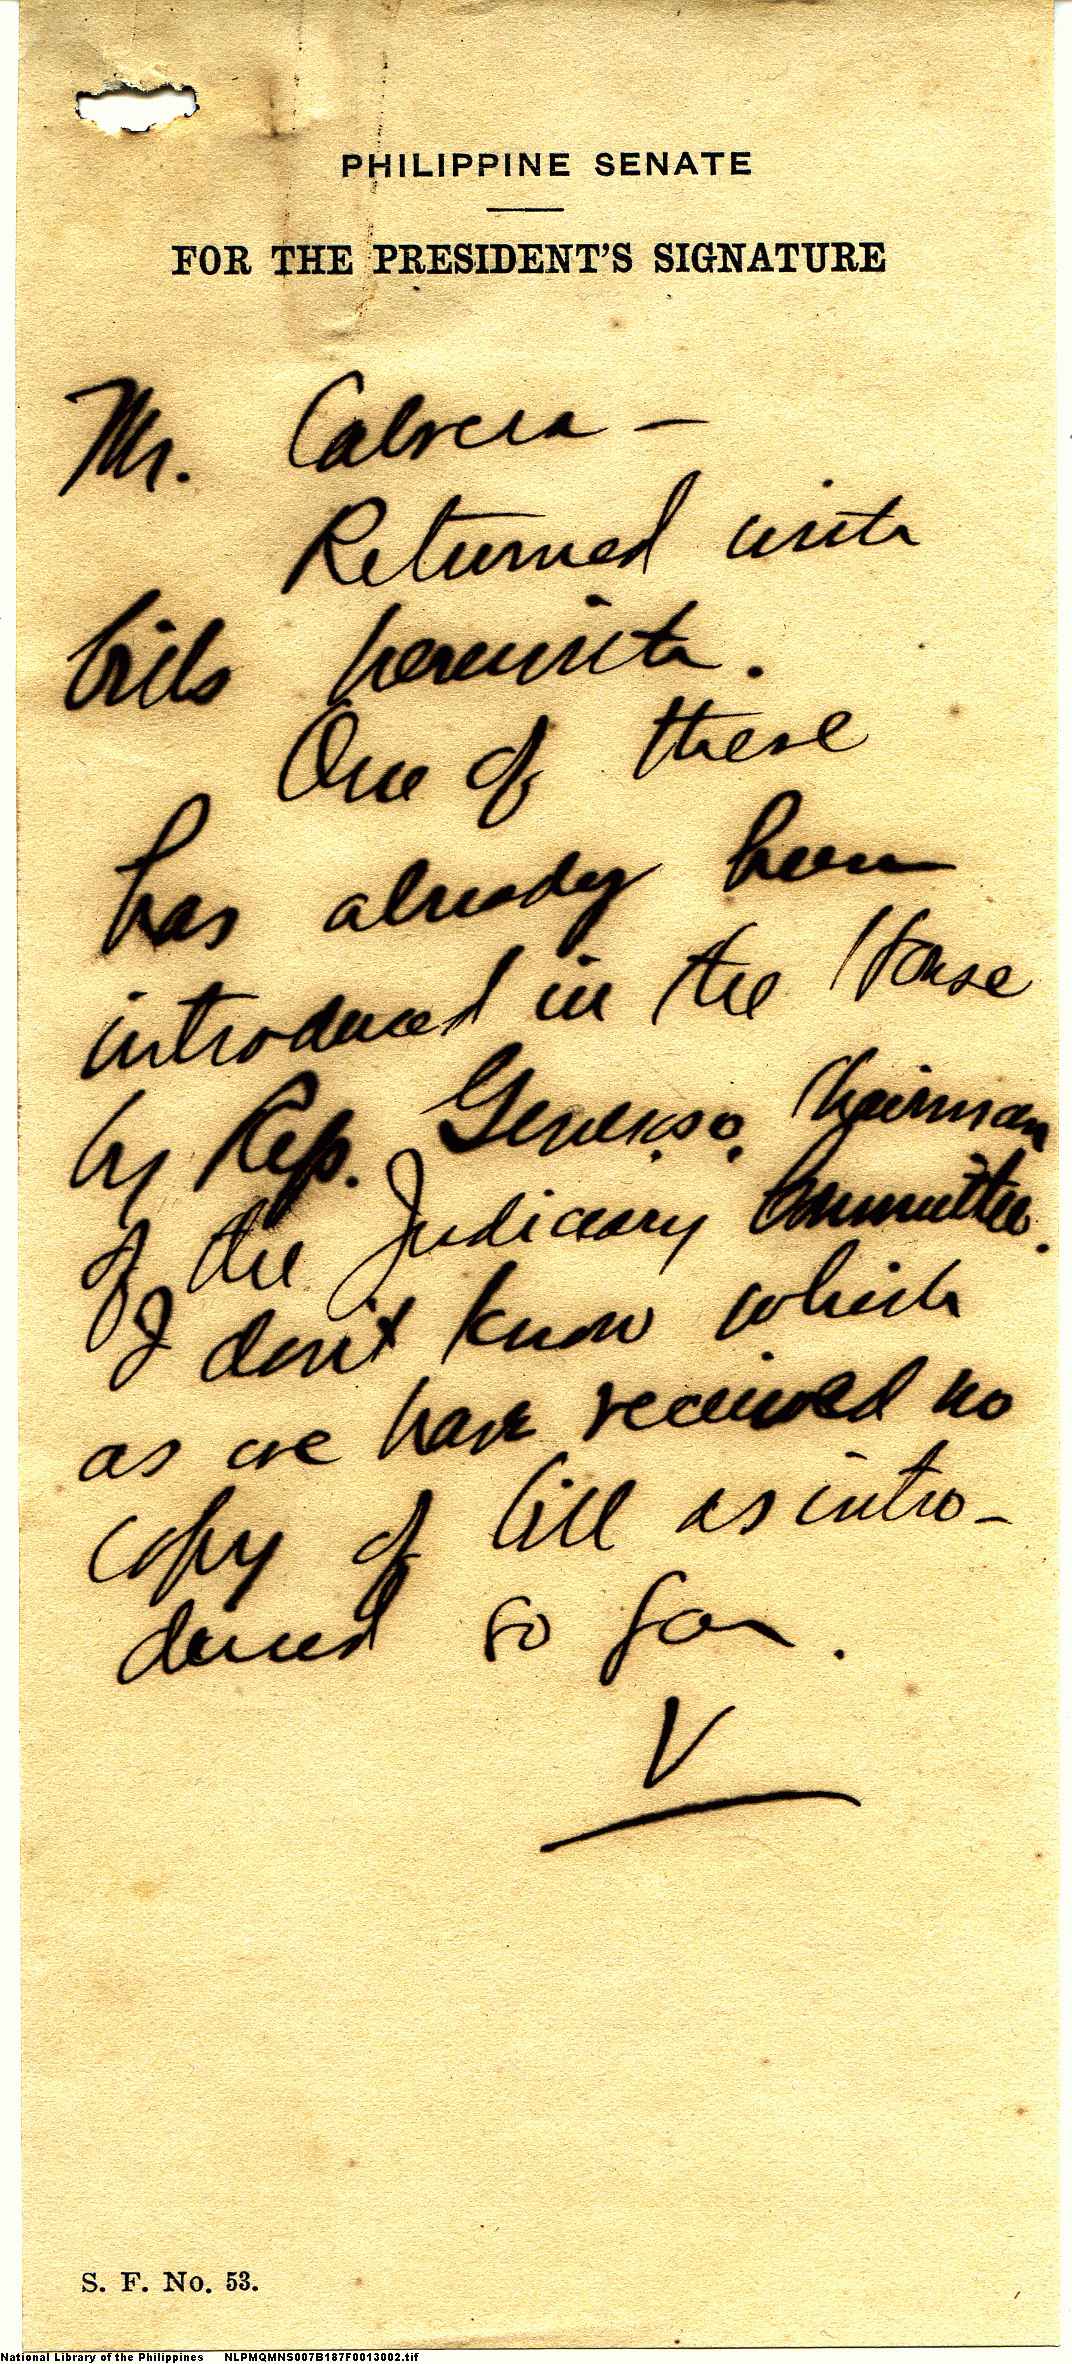 PHILIPPINE SENATE
FOR THE PRESIDENT'S SIGNATURE
Mr. Cabrera —
Returned with
bills herewith.
One of these
has already been
introduced in the House
by Rep. Generoso, Chairman
of the Judiciary Committee.
I don't know which
as we have received no
copy of bill as intro-
duced so far.
V
S. F. No. 53.
National Library of the Philippines NLPMQMNS007B187F0013002.tif